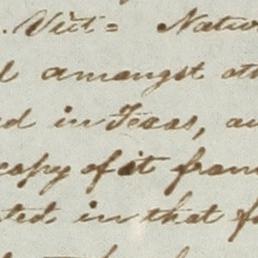 . Vict = Natu
d amongst ot
ed in Texas, a
copy of it fran
ted in that f